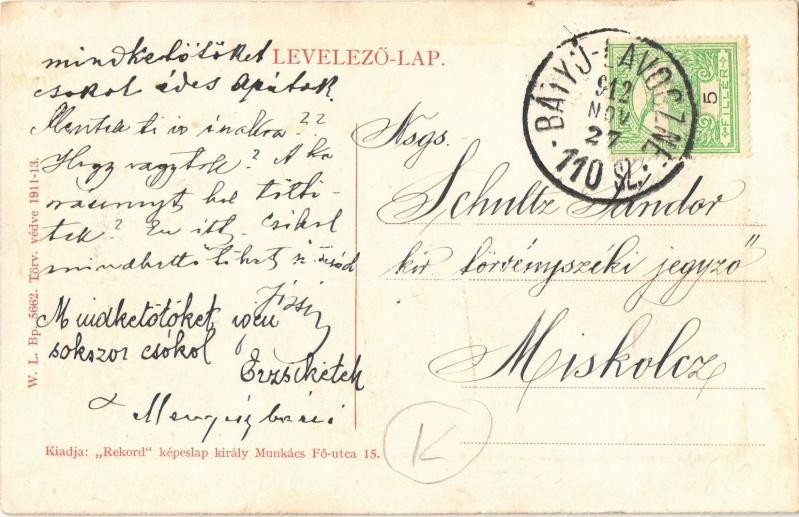 LEVELEZŐ-LAP.
mindkettőtöket
csokol édes apátok.
Mentek ti is
Hogy vagytok? A
hol tölti-
tek? En itt. Csókol
Mindketőtöket igen
sokszor csókol
Erzsiketek
BÁTYÚ-LAVOCZNE
912
NOV
27
110 SZ.
5
FILLÉR
Nsgs.
Schultz Sándor
kir törvényszéki jegyző
Miskolcz
K
W. L. Bp. 5662. Törv. védve 1911-13.
Kiadja: „Rekord" képeslap király Munkács Fő-utca 15.